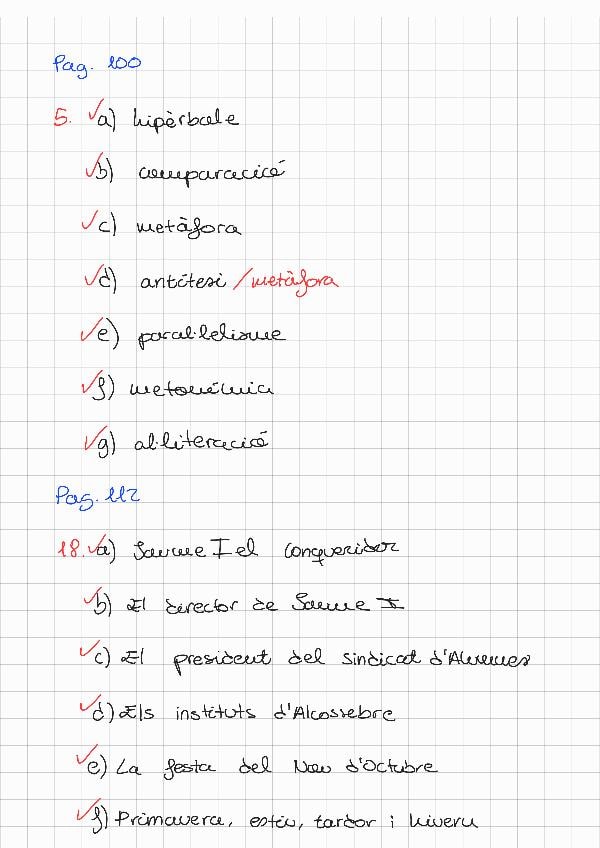 Pag. 100
5. a) hipèrbole
b) comparació
c) metàfora
d) antítesi / metàfora
e) paral·lelisme
f) metonímia
g) al·literació
Pag. 112
18. a) Jaume I el conqueridor
b) El director de Jaume I
c) El president del sindicat d'Alumnes
d) Els instituts d'Alcossebre
e) La festa del Nou d'Octubre
f) Primavera, estiu, tardor i hivern